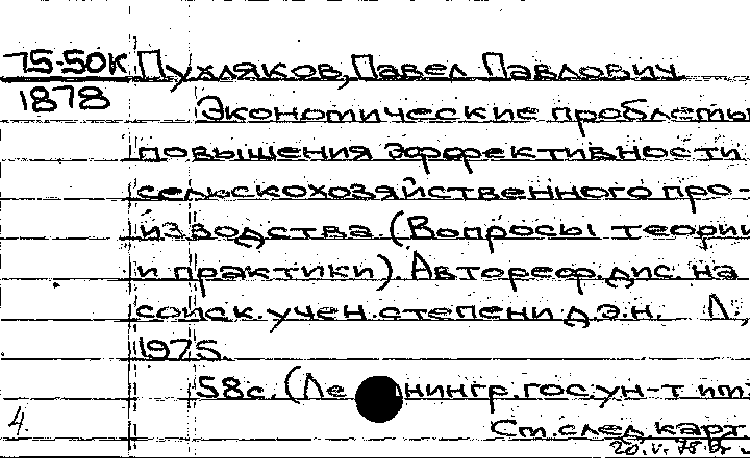 75-50К Пухляков, Павел Павлович
1878
Экономические проблемы
повышения эффективности
сельскохозяйственного про-
изводства. (Вопросы теории
и практики). Автореф. дис. на
соиск. учен. степени д.э.н. Л.,
1975.
58с. (Ле нингр. гос. ун-т им.
4. См. след. карт.
20.V.75